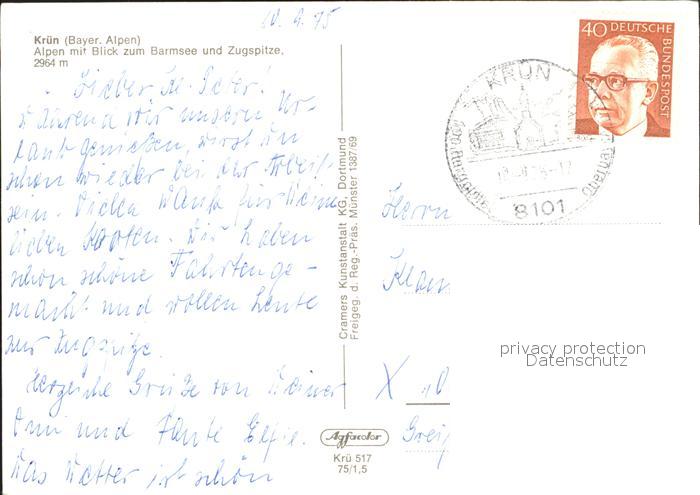 10.9.75
Krün (Bayer. Alpen)
Alpen mit Blick zum Barmsee und Zugspitze,
2964 m
Lieber Kl. Peter!
Während wir unseren Ur-
laub genießen, wirst du
schon wieder bei der Arbeit
sein. Vielen Dank für Deine
lieben Karten. Wir haben
schon schöne Fahrten ge-
macht und wollen heute
zur Zugspitze.
Herzliche Grüße von Deiner
Omi und Tante Elfie.
Das Wetter ist schön
Cramers Kunstanstalt KG, Dortmund
Freigeg. d. Reg.-Präs. Münster 1387/69
Agfacolor
Krü 517
75/1,5
40 DEUTSCHE
BUNDESPOST
KRÜN
8101
Herrn
Klaus
X
Greif
privacy protection
Datenschutz